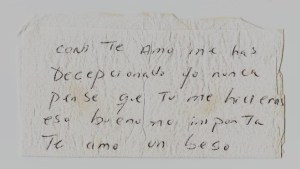 CONI TE AMO me has
Decepcionado yo nunca
pense que Tu me hicieras
eso bueno no importa
Te amo un beso